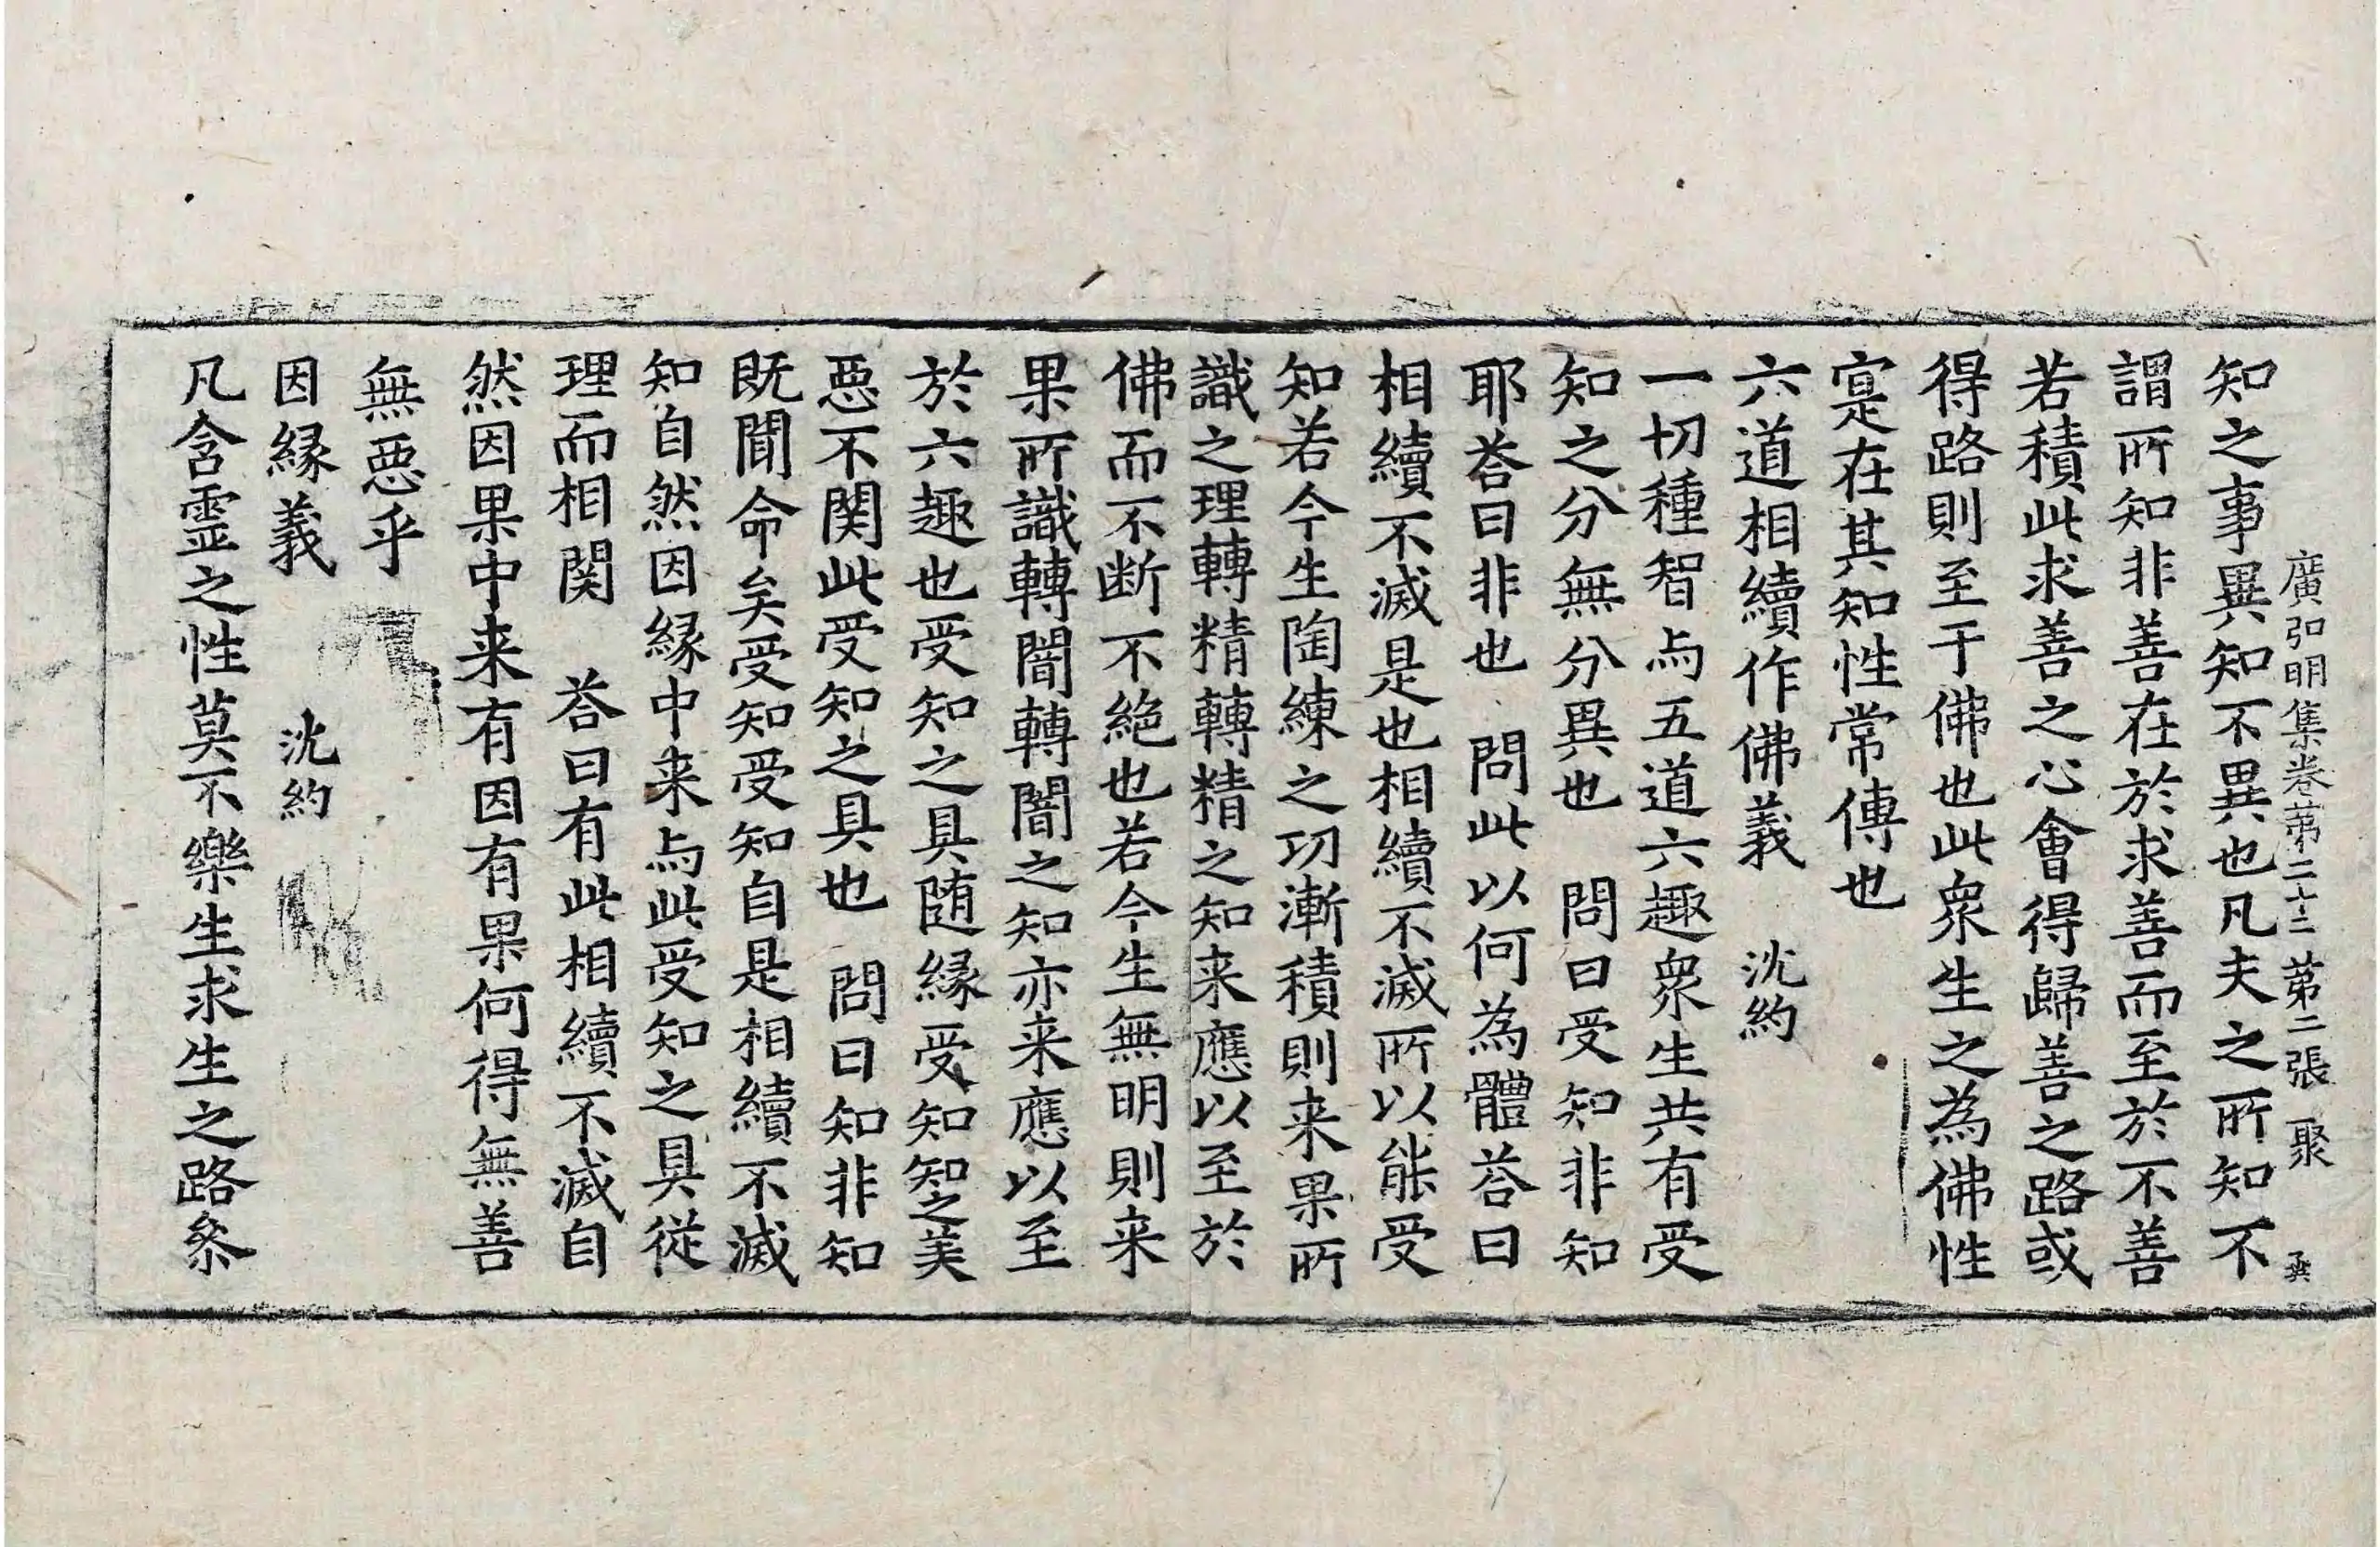 廣弘明集卷苐二十二 苐二張 聚
知之事異知不異也凡夫之所知不
謂所知非善在於求善而至於不善
若積此求善之心會得歸善之路或
得路則至于佛也此衆生之為佛性
寔在其知性常傳也
六道相續作佛義 沈約
一切種智与五道六趣衆生共有受
知之分無分異也 問曰受知非知
耶荅曰非也 問此以何為體荅曰
相續不滅是也相續不滅所以能受
知若今生陶練之功漸積則来果所
識之理轉精轉精之知来應以至於
佛而不断不絶也若今生無明則来
果所識轉闇轉闇之知亦来應以至
於六趣也受知之具随緣受知知之美
惡不関此受知之具也 問曰知非知
既聞命矣受知受知自是相續不滅
知自然因緣中来与此受知之具從
理而相関 荅曰有此相續不滅自
然因果中来有因有果何得無善
無惡乎
因緣義 沈約
凡含靈之性莫不樂生求生之路叅